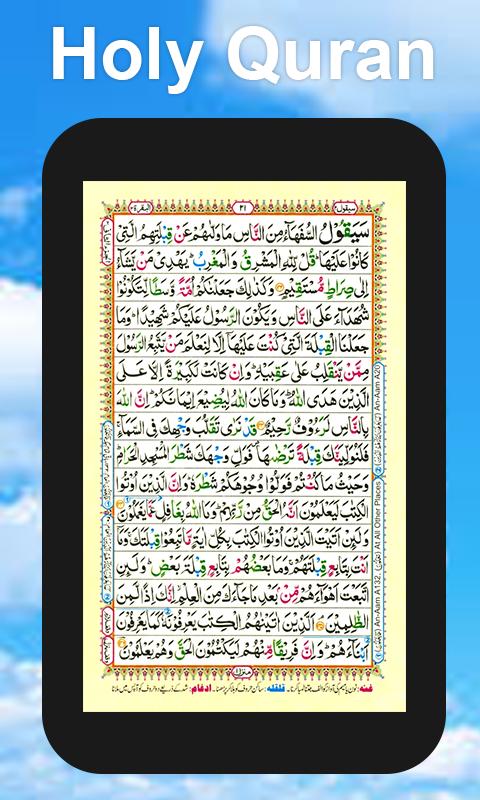 Holy Quran
سیقول ٢
٢١
البقرة ٢
سَيَقُوْلُ السُّفَهَآءُ مِنَ النَّاسِ مَا وَلّٰىهُمْ عَنْ قِبْلَتِهِمُ الَّتِيْ
كَانُوْا عَلَيْهَا ؕ قُلْ لِّلّٰهِ الْمَشْرِقُ وَالْمَغْرِبُ ؕ يَهْدِيْ مَنْ يَّشَآءُ
اِلٰى صِرَاطٍ مُّسْتَقِيْمٍ وَكَذٰلِكَ جَعَلْنٰكُمْ اُمَّةً وَّسَطًا لِّتَكُوْنُوْا
شُهَدَآءَ عَلَى النَّاسِ وَيَكُوْنَ الرَّسُوْلُ عَلَيْكُمْ شَهِيْدًا ؕ وَمَا
جَعَلْنَا الْقِبْلَةَ الَّتِيْ كُنْتَ عَلَيْهَآ اِلَّا لِنَعْلَمَ مَنْ يَّتَّبِعُ الرَّسُوْلَ
مِمَّنْ يَّنْقَلِبُ عَلٰى عَقِبَيْهِ ؕ وَاِنْ كَانَتْ لَكَبِيْرَةً اِلَّا عَلَى
الَّذِيْنَ هَدَى اللّٰهُ ؕ وَمَا كَانَ اللّٰهُ لِيُضِيْعَ اِيْمَانَكُمْ ؕ اِنَّ اللّٰهَ
بِالنَّاسِ لَرَءُوْفٌ رَّحِيْمٌ قَدْ نَرٰى تَقَلُّبَ وَجْهِكَ فِي السَّمَآءِ
فَلَنُوَلِّيَنَّكَ قِبْلَةً تَرْضٰهَا فَوَلِّ وَجْهَكَ شَطْرَ الْمَسْجِدِ الْحَرَامِ
وَحَيْثُ مَا كُنْتُمْ فَوَلُّوْا وُجُوْهَكُمْ شَطْرَهٗ ؕ وَاِنَّ الَّذِيْنَ اُوْتُوا
الْكِتٰبَ لَيَعْلَمُوْنَ اَنَّهُ الْحَقُّ مِنْ رَّبِّهِمْ ؕ وَمَا اللّٰهُ بِغَافِلٍ عَمَّا يَعْمَلُوْنَ
وَلَئِنْ اَتَيْتَ الَّذِيْنَ اُوْتُوا الْكِتٰبَ بِكُلِّ اٰيَةٍ مَّا تَبِعُوْا قِبْلَتَكَ وَمَآ
اَنْتَ بِتَابِعٍ قِبْلَتَهُمْ وَمَا بَعْضُهُمْ بِتَابِعٍ قِبْلَةَ بَعْضٍ ؕ وَلَئِنِ
اتَّبَعْتَ اَهْوَآءَهُمْ مِّنْۢ بَعْدِ مَا جَآءَكَ مِنَ الْعِلْمِ اِنَّكَ اِذًا لَّمِنَ
الظّٰلِمِيْنَ اَلَّذِيْنَ اٰتَيْنٰهُمُ الْكِتٰبَ يَعْرِفُوْنَهٗ كَمَا يَعْرِفُوْنَ
اَبْنَآءَهُمْ ؕ وَاِنَّ فَرِيْقًا مِّنْهُمْ لَيَكْتُمُوْنَ الْحَقَّ وَهُمْ يَعْلَمُوْنَ
An-Aam A132, At All Other Places
An-Aam A20
منزل ١